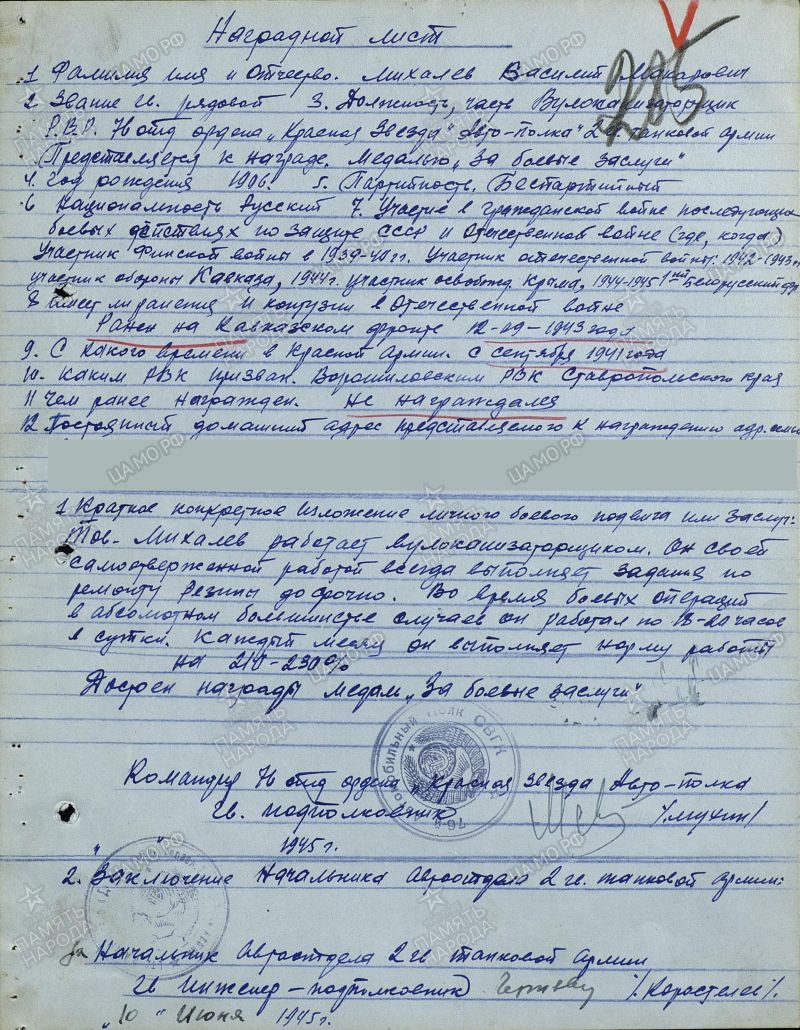 Наградной лист
205
1 Фамилия имя и Отчество. Михалев Василий Макарович
2 Звание гв. рядовой 3. Должность, часть Вулоканизаторщик
Р.В.Р. 76 отд ордена „Красная Звезда" Авто-полка 2 гв. танковой армии
Представляется к награде. Медалью „За боевые заслуги"
4. Год рождения 1906. 5. Партийность. Беспартийный
6 Национальность Русский 7. Участие в гражданской войне последующих
боевых действиях по защите СССР и Отечественной войне (где, когда)
Участник Финской войны в 1939-40 гг. Участник отечественной войны: 1942-1943 гг
участник обороны Кавказа, 1944г. участник освобожд. Крыма, 1944-1945 1ый Белорусский фр
8 Имеет ли ранения и контузии в Отечественной войне
Ранен на Кавказском фронте 12-09-1943 года
9. С какого времени в Красной Армии. С сентября 1941 года
10. Каким РВК призван. Ворошиловским РВК Ставропольского края
11 Чем ранее награжден. Не награждался
12 Постоянный домашний адрес представляемого к награждению адр. семьи
1 Краткое конкретное изложение личного боевого подвига или заслуг:
Тов. Михалев работает вулоканизаторщиком. Он своей
самоотверженной работой всегда выполняет задания по
ремонту Резины досрочно. Во время боевых операций
в абсолютном большинстве случаев он работал по 18-20 часов
в сутки. Каждый месяц он выполняет норму работы
на 210-230%
Достоен награды медали „За боевые заслуги"
Командир 76 отд ордена „Красная звезда Авто-полка
Гв. подполковник /Мухин/
" " 1945 г.
76й Автомобильный Полк СВГК
2. Заключение Начальника Автоотдела 2 гв. танковой армии:
Начальник Автоотдела 2 гв танковой армии
Гв Инженер-подполковник /Коростелев/.
„10" Июня 1945г.
ПАМЯТЬ НАРОДА
ЦАМО РФ